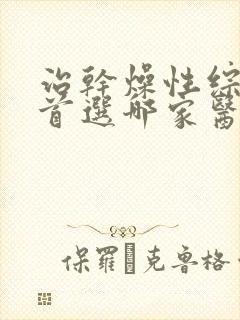 治幹燥性綜
首選哪家醫
保羅·克鲁格